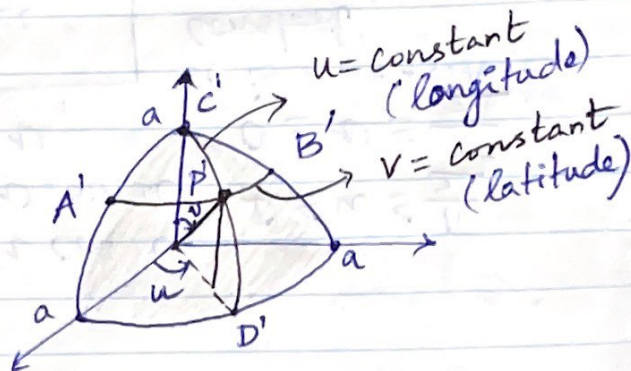 u = constant
(longitude)
a C'
B'
v = constant
(latitude)
P'
A'
v
a
u
a
D'